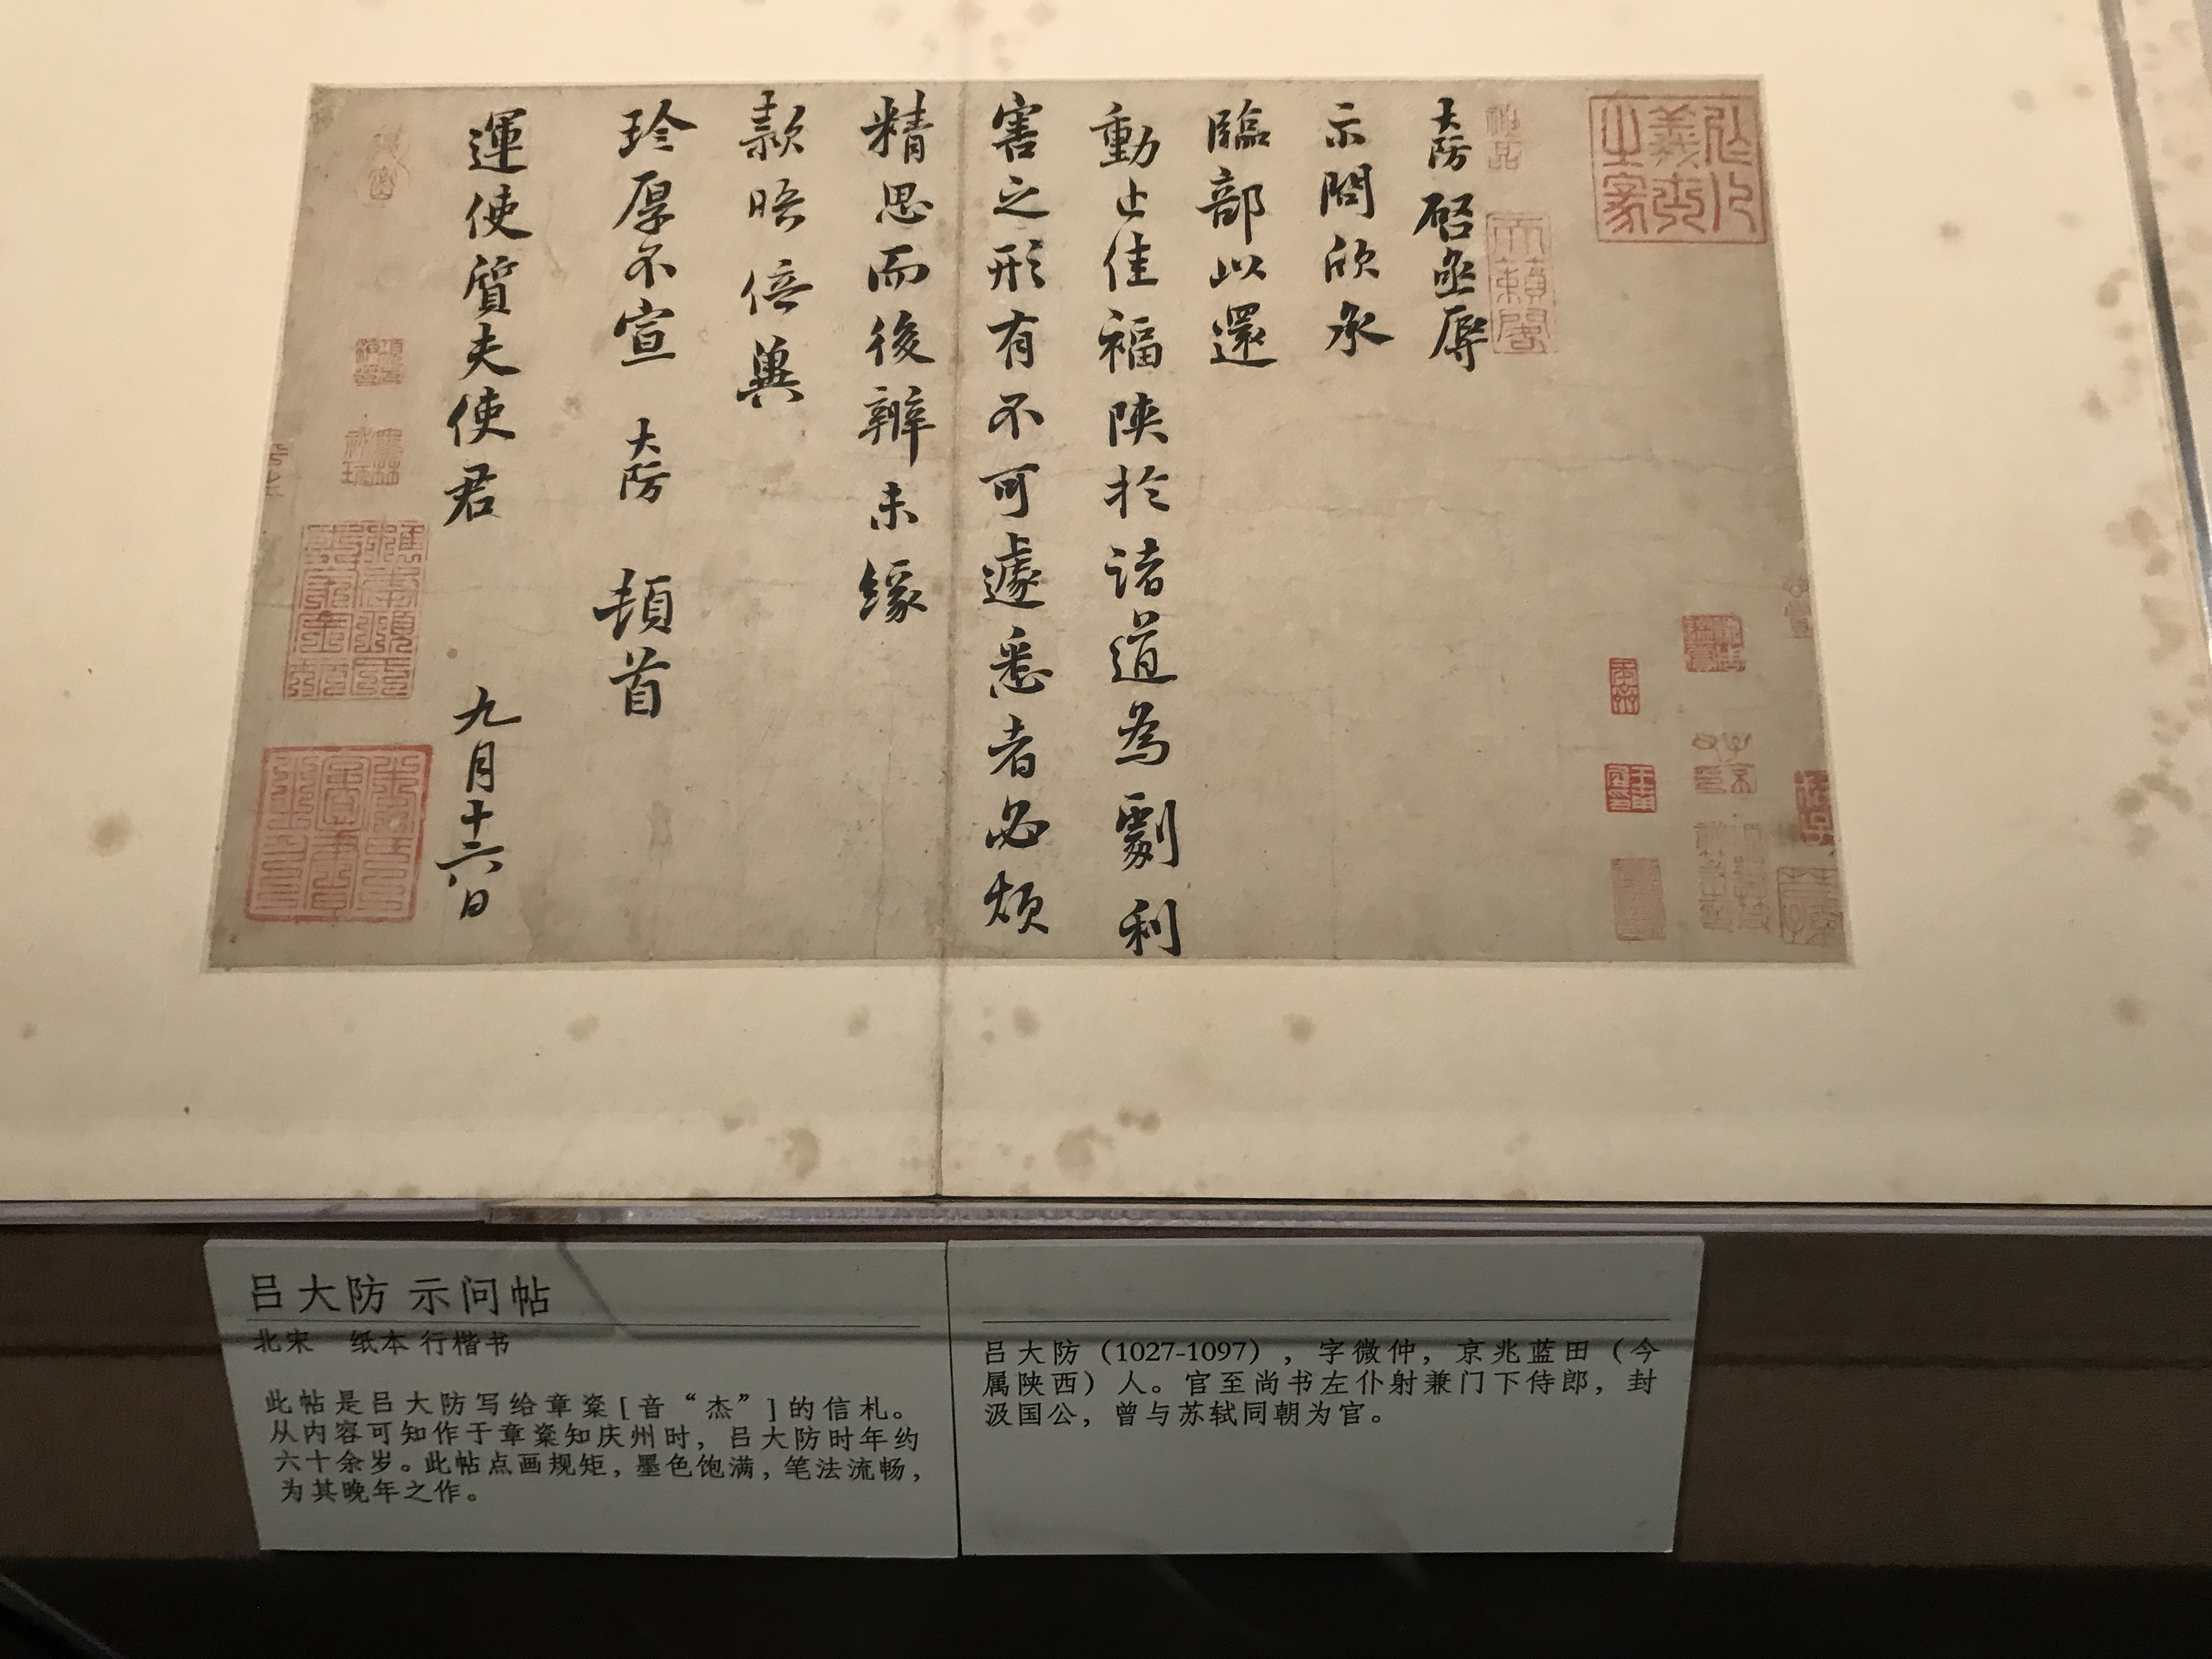 大防啓亟辱
示問欣承
臨部以還
動止佳福陝於諸道為劇利
害之形有不可遽悉者必煩
精思而後辦未緣
款晤倍冀
珍厚不宣 大防 頓首
運使質夫使君 九月十六日
吕大防 示问帖
北宋 纸本 行楷书
此帖是吕大防写给章楶[音“杰”]的信札。
从内容可知作于章楶知庆州时，吕大防时年约
六十余岁。此帖点画规矩，墨色饱满，笔法流畅，
为其晚年之作。
吕大防（1027-1097），字微仲，京兆蓝田（今
属陕西）人。官至尚书左仆射兼门下侍郎，封
汲国公，曾与苏轼同朝为官。